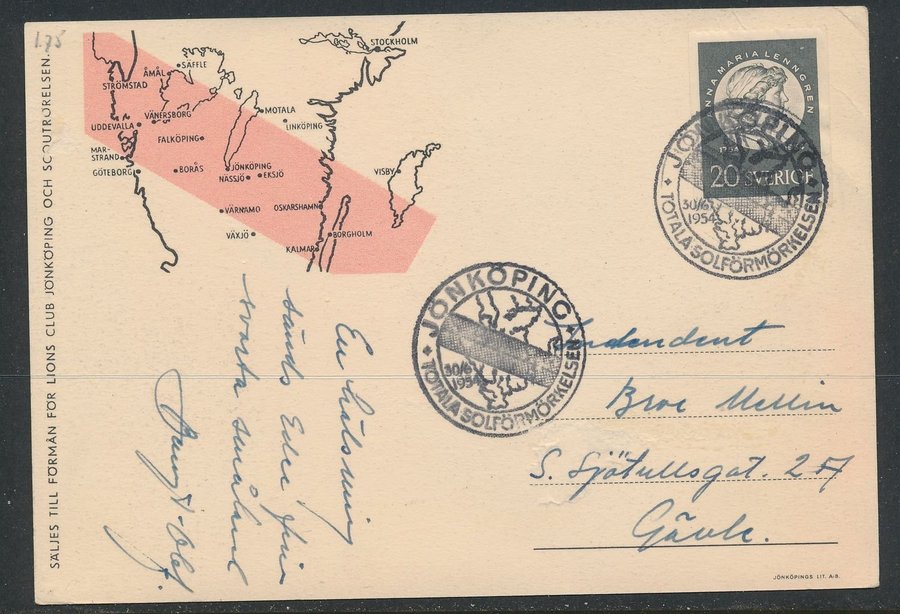 1.75
SÄLJES TILL FÖRMÅN FÖR LIONS CLUB JÖNKÖPING OCH SCOUTRÖRELSEN.
STOCKHOLM
SÄFFLE
ÅMÅL
STRÖMSTAD
MOTALA
VÄNERSBORG
LINKÖPING
UDDEVALLA
FALKÖPING
MAR-
STRAND
GÖTEBORG
BORÅS
JÖNKÖPING
NÄSSJÖ
EKSJÖ
VISBY
VÄRNAMO
OSKARSHAMN
VÄXJÖ
BORGHOLM
KALMAR
ANNA MARIA LENNGREN
1754
20 SVERIGE
JÖNKÖPING
30/6
1954
TOTALA SOLFÖRMÖRKELSEN
JÖNKÖPING
30/6
1954
TOTALA SOLFÖRMÖRKELSEN
En hälsning
sänds Eder från
svarta småland
Bengt-Olof.
Broe Mellin
S. Sjötullsgat. 27
Gävle.
JÖNKÖPINGS LIT. A-B.